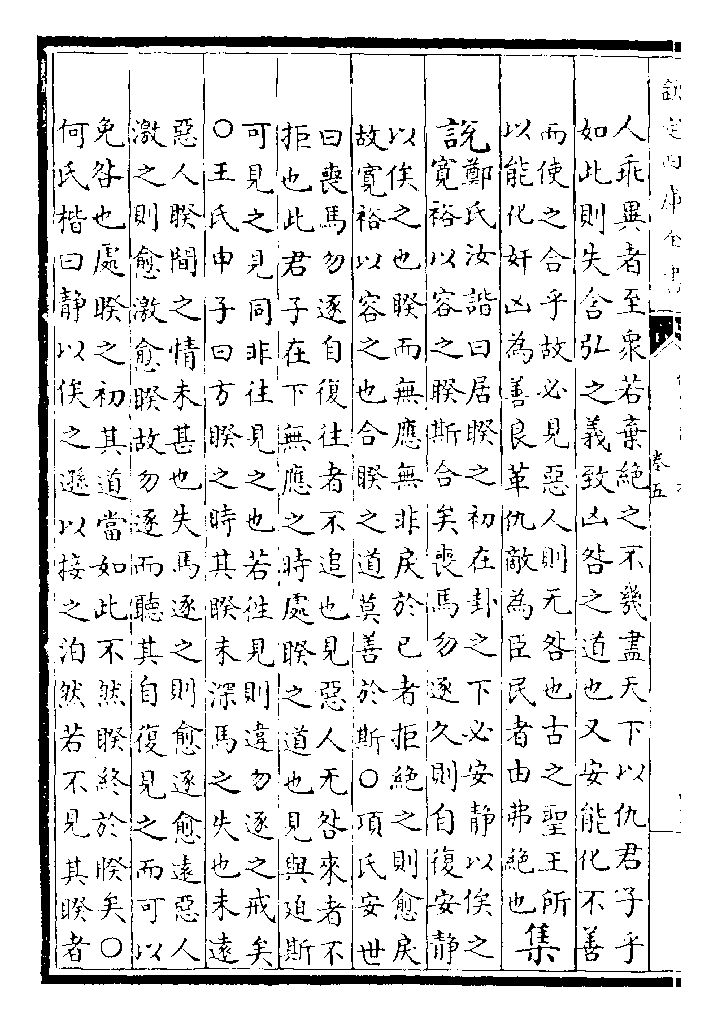 欽定四庫全書
卷五
人乖異者至衆若棄絶之不幾盡天下以仇君子乎
如此則失含弘之義致凶咎之道也又安能化不善
而使之合乎故必見惡人則无咎也古之聖王所
以能化奸凶為善良革仇敵為臣民者由弗絶也集
說鄭氏汝諧曰居睽之初在卦之下必安靜以俟之
寛裕以容之睽斯合矣喪馬勿逐久則自復安靜
以俟之也睽而無應無非戾於已者拒絶之則愈戾
故寛裕以容之也合睽之道莫善於斯○項氏安世
曰喪馬勿逐自復往者不追也見惡人无咎來者不
拒也此君子在下無應之時處睽之道也見與廹斯
可見之見同非往見之也若往見則違勿逐之戒矣
○王氏申子曰方睽之時其睽未深馬之失也未遠
惡人睽間之情未甚也失馬逐之則愈逐愈遠惡人
激之則愈激愈睽故勿逐而聽其自復見之而可以
免咎也處睽之初其道當如此不然睽終於睽矣○
何氏楷曰靜以俟之遜以接之泊然若不見其睽者